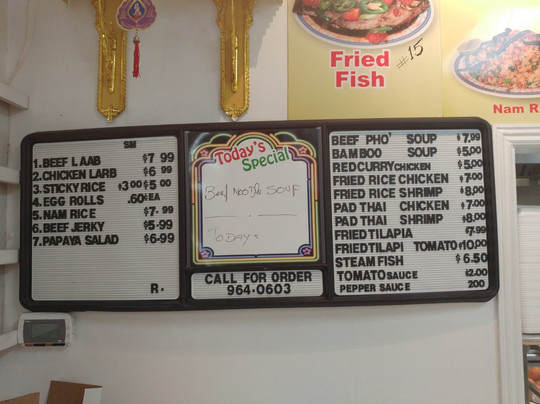 Fried
Fish
#15
Nam R
SM
1.BEEF LAAB $7 99
2.CHICKEN LARB $6 99
3.STICKY RICE $3 00 $5 00
4.EGG ROLLS .60¢EA
5.NAM RICE $7.99
6.BEEF JERKY $5-99
7.PAPAYA SALAD $6-99
R.
Today's
Special
Beef Noodle Soup
Today's
CALL FOR ORDER
964-0603
BEEF PHO' SOUP $7.99
BAMBOO SOUP $5.00
RED CURRY CHICKEN $5.00
FRIED RICE CHICKEN $7.00
FRIED RICE SHRIMP $8.00
PAD THAI CHICKEN $7.00
PAD THAI SHRIMP $8.00
FRIED TILAPIA $7.99
FRIED TILAPI TOMATO $10.00
STEAM FISH $6.50
TOMATO SAUCE $2.00
PEPPER SAUCE 200